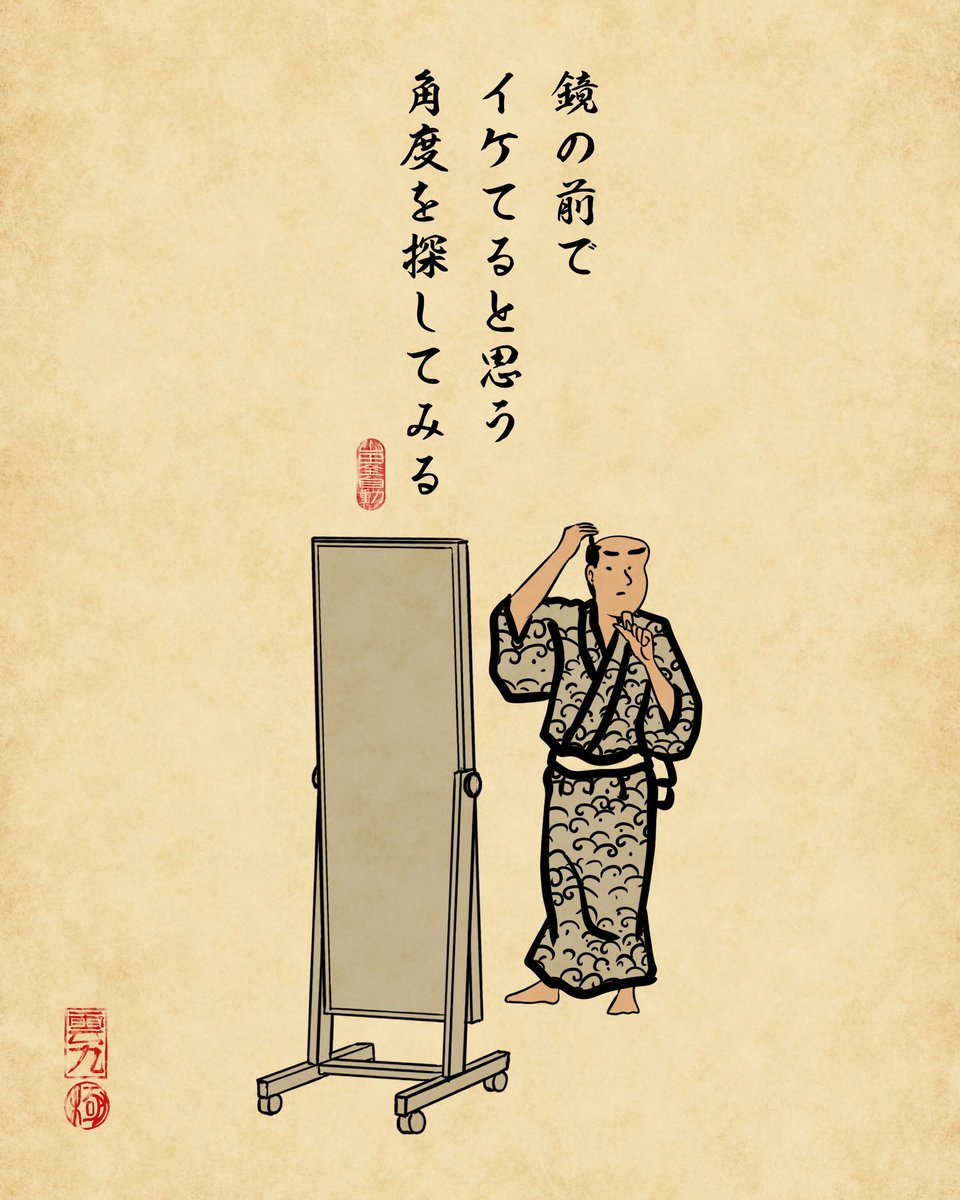 鏡の前で
イケてると思う
角度を探してみる